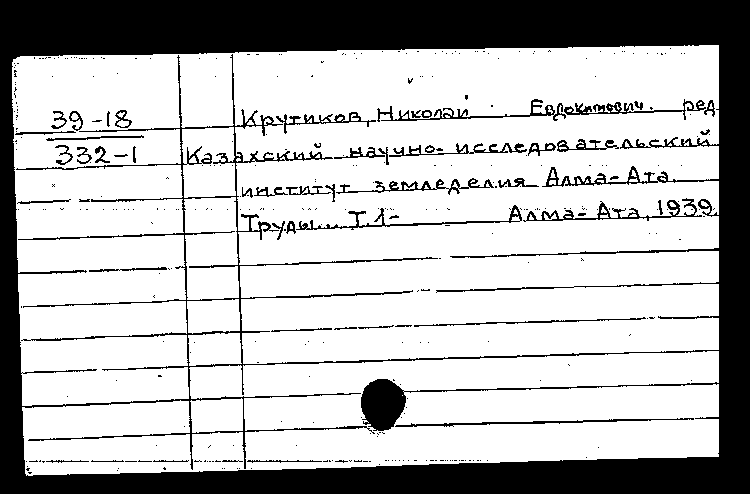 39-18
332-1
Крутиков, Николай Евдокимович. ред
Казахский научно-исследовательский
институт земледелия Алма-Ата.
Труды... Т.1- Алма-Ата, 1939.